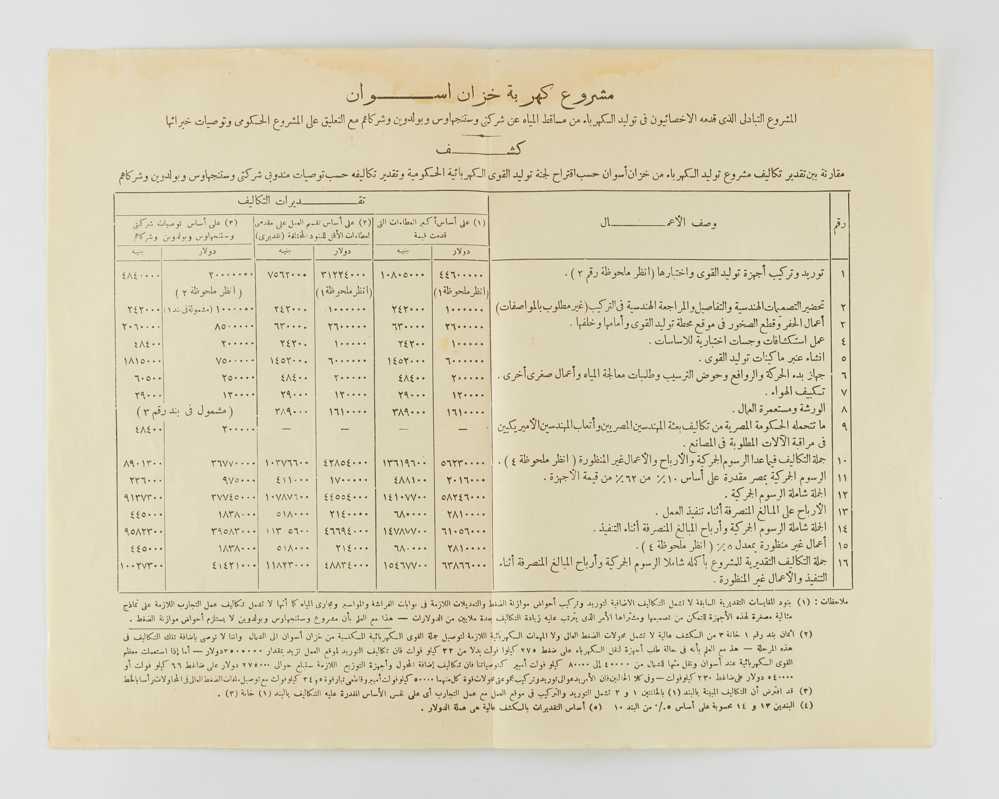 مشروع كهربة خزان اســـوان
المشروع التبادلى الذى قدمه الاخصائيون فى توليد الكهرباء من مساقط المياه عن شركتى وستنجهاوس وبولدوين وشركاهم مع التعليق على المشروع الحكومى وتوصيات خبرائها
كشـــف
مقارنة بين تقدير تكاليف مشروع توليد الكهرباء من خزان أسوان حسب اقتراح لجنة توليد القوى الكهربائية الحكومية وتقدير تكاليفه حسب توصيات مندوبى شركتى وستنجهاوس وبولدوين وشركاهم
رقم وصف الأعمـــال تقـــديرات التكاليف
(١) على أساس أكبر العطاءات التى قدمت قيمة (٢) على أساس تقسيم العمل على مقدمى العطاءات الأقل للبنود المختلفة (تقديرى) (٣) على أساس توصيات شركتى وستنجهاوس وبولدوين وشركاهم
دولار جنيه دولار جنيه دولار جنيه
١ توريد وتركيب أجهزة توليد القوى واختبارها (انظر ملحوظة رقم ٢) . ٤٤٦٠٠٠٠٠ ١٠٨٠٥٠٠٠ ٣١٢٢٤٠٠٠ ٧٥٦٢٠٠٠ ٢٠٠٠٠٠٠٠ ٤٨٤٠٠٠٠
(انظر ملحوظة ١) (انظر ملحوظة ١) (انظر ملحوظة ٢)
٢ تحضير التصميمات الهندسية والتفاصيل والمراجعة الهندسية فى التركيب (غير مطلوب بالمواصفات) ١٠٠٠٠٠٠ ٢٤٢٠٠٠ ١٠٠٠٠٠٠ ٢٤٢٠٠٠ ١٠٠٠٠٠٠ (مشمولة فى بند ١) ٢٤٢٠٠٠
٣ أعمال الحفر وقطع الصخور فى موقع محطة توليد القوى وأمامها وخلفها . ٢٦٠٠٠٠٠ ٦٣٠٠٠٠ ٢٦٠٠٠٠٠ ٦٣٠٠٠٠ ٨٥٠٠٠٠٠ ٢٠٦٠٠٠٠
٤ عمل استكشافات وجسات اختبارية للاساسات . ١٠٠٠٠٠ ٢٤٢٠٠ ١٠٠٠٠٠ ٢٤٢٠٠ ٢٠٠٠٠٠ ٤٨٤٠٠
٥ انشاء عنبر ماكينات توليد القوى . ٦٠٠٠٠٠٠ ١٤٥٢٠٠٠ ٦٠٠٠٠٠٠ ١٤٥٢٠٠٠ ٧٥٠٠٠٠٠ ١٨١٥٠٠٠
٦ جهاز بدء الحركة والروافع وحوض الترسيب وطلبات معالجة المياه وأعمال صغرى أخرى . ٢٠٠٠٠٠ ٤٨٤٠٠ ٢٠٠٠٠٠ ٤٨٤٠٠ ٢٥٠٠٠٠ ٦٠٥٠٠
٧ تكييف الهواء . ١٢٠٠٠٠ ٢٩٠٠٠ ١٢٠٠٠٠ ٢٩٠٠٠ ١٢٠٠٠٠ ٢٩٠٠٠
٨ الورشة ومستعمرة العمال . ١٦١٠٠٠٠ ٣٨٩٠٠٠ ١٦١٠٠٠٠ ٣٨٩٠٠٠ (مشمول فى بند رقم ٣)
٩ ما تتحمله الحكومة المصرية من تكاليف بعثة المهندسين المصريين وأتعاب المهندسين الأميريكيين — — — — ٢٠٠٠٠٠ ٤٨٤٠٠
فى مراقبة الآلات المطلوبة فى المصانع .
١٠ جملة التكاليف فيما عدا الرسوم الجمركية والأرباح والأعمال غير المنظورة (انظر ملحوظة ٤) . ٥٦٢٣٠٠٠٠ ١٣٦١٩٦٠٠ ٤٢٨٥٤٠٠٠ ١٠٣٧٦٦٠٠ ٣٦٧٧٠٠٠٠ ٨٩٠١٣٠٠
١١ الرسوم الجمركية بمصر مقدرة على أساس ١٠٪ من ٦٢٪ من قيمة الأجهزة . ٢٠١٦٠٠٠ ٤٨٨١٠٠ ١٧٠٠٠٠٠ ٤١١٠٠٠ ٩٧٥٠٠٠ ٢٣٦٠٠٠
١٢ الجملة شاملة الرسوم الجمركية . ٥٨٢٤٦٠٠٠ ١٤١٠٧٧٠٠ ٤٤٥٥٤٠٠٠ ١٠٧٨٧٦٠٠ ٣٧٧٤٥٠٠٠ ٩١٣٧٣٠٠
١٣ الأرباح على المبالغ المنصرفة أثناء تنفيذ العمل . ٢٨١٠٠٠٠ ٦٨٠٠٠٠ ٢١٤٠٠٠٠ ٥١٨٠٠٠ ١٨٣٨٠٠٠ ٤٤٥٠٠٠
١٤ الجملة شاملة الرسوم الجمركية وأرباح المبالغ المنصرفة أثناء التنفيذ . ٦١٠٥٦٠٠٠ ١٤٧٨٧٧٠٠ ٤٦٦٩٤٠٠٠ ١١٣٠٥٦٠٠ ٣٩٥٨٣٠٠٠ ٩٥٨٢٣٠٠
١٥ أعمال غير منظورة بمعدل ٥٪ (انظر ملحوظة ٤) . ٢٨١٠٠٠٠ ٦٨٠٠٠٠ ٢١٤٠٠٠٠ ٥١٨٠٠٠ ١٨٣٨٠٠٠ ٤٤٥٠٠٠
١٦ جملة التكاليف التقديرية للمشروع بأكمله شاملا الرسوم الجمركية وأرباح المبالغ المنصرفة أثناء ٦٣٨٦٦٠٠٠ ١٥٤٦٧٧٠٠ ٤٨٨٣٤٠٠٠ ١١٨٢٣٠٠٠ ٤١٤٢١٠٠٠ ١٠٠٢٧٣٠٠
التنفيذ والأعمال غير المنظورة .
ملاحظات : (١) بنود المقايسات التقديرية السابقة لا تشمل التكاليف الاضافية لتوريد وتركيب أحواض موازنة الضغط والتعديلات اللازمة فى بوابات الفراشة والمواسير ومجارى المياه كما أنها لا تشمل تكاليف عمل التجارب اللازمة على نماذج
مثالية مصغرة لهذه الأجهزة للتمكن من تصميمها ومشتراها الأمر الذى يترتب عليه زيادة التكاليف بعدة ملايين من الدولارات — هذا مع العلم بأن مشروع وستنجهاوس وبولدوين لا يستلزم أحواض موازنة الضغط .
(٢) أثمان بند رقم ١ خانة ٣ من الكشف عالية لا تشمل محولات الضغط العالى ولا المهمات الكهربائية اللازمة لتوصيل جملة القوى الكهربائية المكتسبة من خزان أسوان الى الشمال واننا لا نوصى بإضافة تلك التكاليف فى
هذه المرحلة — هذا مع العلم بأنه فى حالة طلب أجهزة لنقل الكهرباء على ضغط ٢٧٥ كيلوا فولت بدلا من ٣٣ كيلو فولت فان تكاليف التوريد لموقع العمل تزيد بمقدار ٣٥٠٠٠٠٠ دولار — أما إذا استعملت معظم
القوى الكهربائية عند أسوان ونقل منها للشمال من ٤٠٠٠٠ إلى ٨٠٠٠٠ كيلو فولت أمبير كتوصياتنا فان تكاليف إضافة المحول وأجهزة التوزيع اللازمة ستبلغ حوالى ٢٧٥٠٠٠ دولار على ضاغط ٦٦ كيلو فولت أو
٥٤٠٠٠٠ دولار على ضاغط ٢٣٠ كيلو فولت —
(٣) قد افترض أن التكاليف المبينة بالبند (١) بالخانتين ١ و ٢ تشمل التوريد والتركيب فى موقع العمل مع عمل التجارب أى على نفس الأساس المقدرة عليه التكاليف بالبند (١) خانة (٣) .
(٤) البندين ١٣ و ١٤ محسوبة على أساس ٥٪ من البند ١٠ (٥) أساس التقديرات بالكشف عالية هى عملة الدولار .